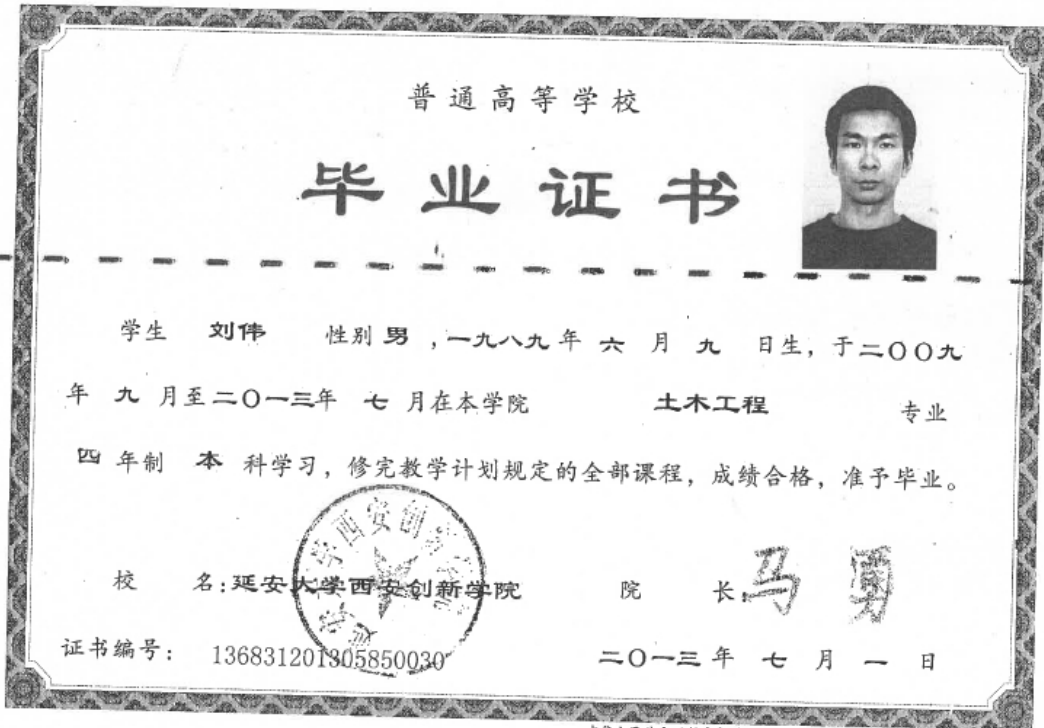 普通高等学校
毕业证书
学生 刘伟 性别 男 ,一九八九 年 六 月 九 日生, 于二〇〇九
年 九 月至二〇一三年 七 月在本学院 土木工程 专业
四 年制 本 科学习, 修完教学计划规定的全部课程, 成绩合格, 准予毕业。
延安大学西安创新学院
校 名:延安大学西安创新学院 院 长:马勇
证书编号: 136831201305850030
二〇一三 年 七 月 一 日